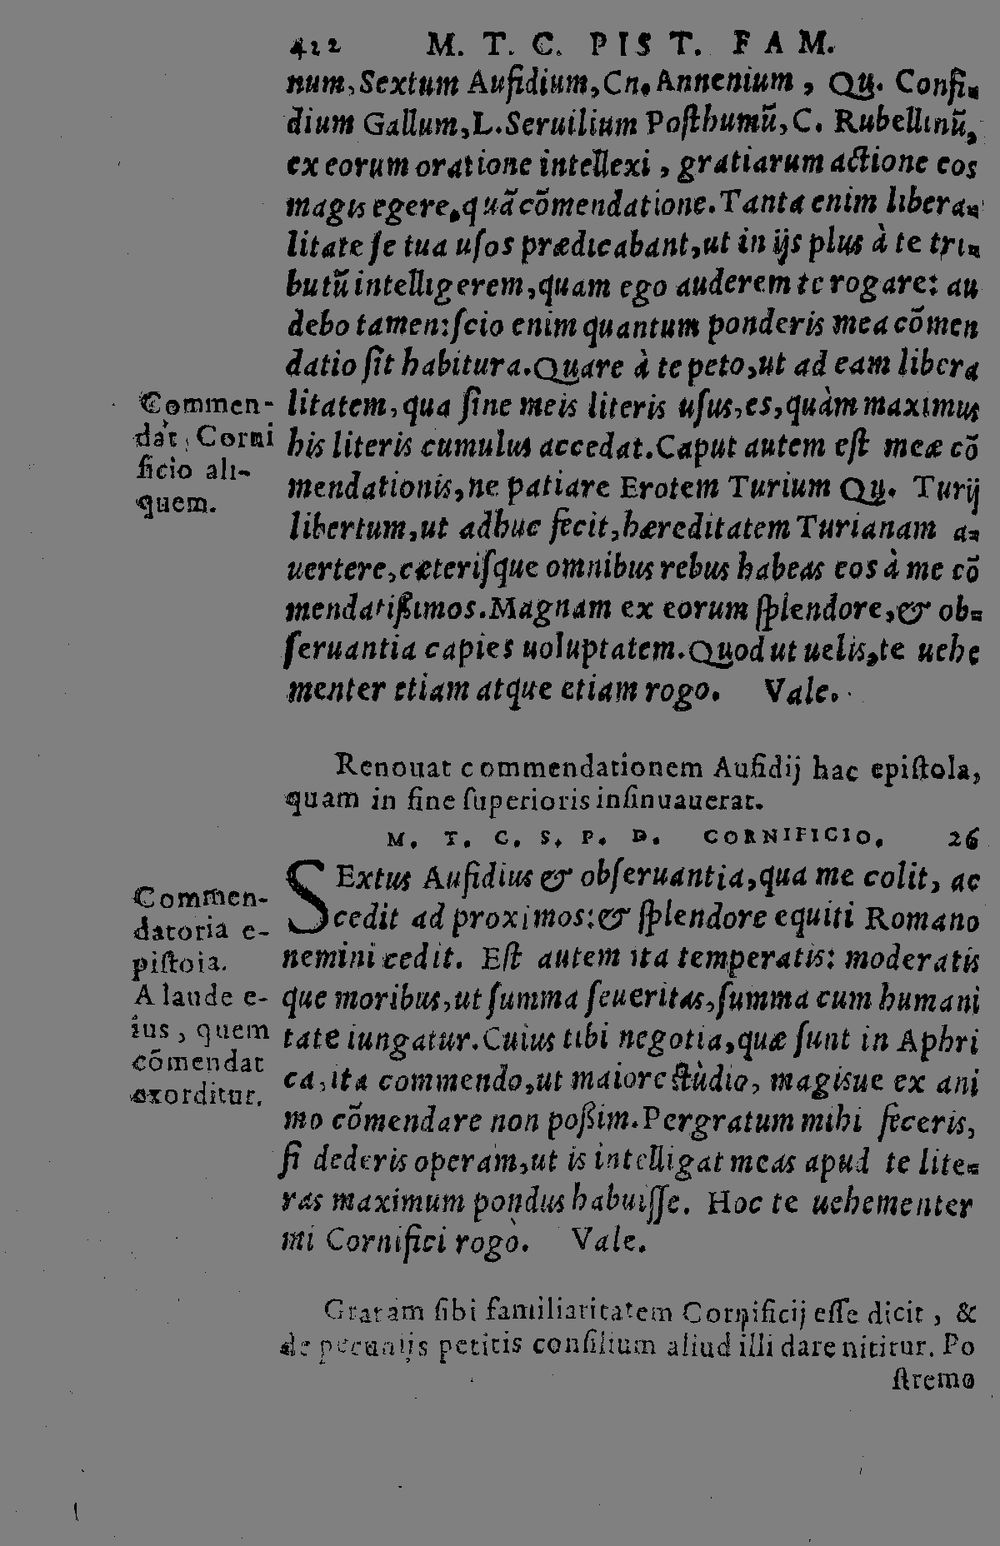 422 M. T. C. PIST. FAM.
num, Sextum Aufidium, Cn. Annenium, Qu. Consi-
dium Gallum, L. Seruilium Posthumũ, C. Rubellinũ,
ex eorum oratione intellexi, gratiarum actione eos
magis egere, quã cõmendatione. Tanta enim libera-
litate se tua usos prædicabant, ut in ijs plus à te tri-
butũ intelligerem, quam ego auderem te rogare: au
debo tamen: scio enim quantum ponderis mea cõmen
datio sit habitura. Quare à te peto, ut ad eam libera
litatem, qua sine meis literis usus, es, quàm maximus
his literis cumulus accedat. Caput autem est meæ cõ
mendationis, ne patiare Erotem Turium Qu. Turij
libertum, ut adhuc fecit, hæreditatem Turianam a-
uertere, cæterisque omnibus rebus habeas eos à me cõ
mendatißimos. Magnam ex eorum splendore, & ob-
seruantia capies uoluptatem. Quod ut uelis, te uehe
menter etiam atque etiam rogo. Vale.
Commen-
dat Corni
ficio ali-
quem.
Renouat commendationem Aufidij hac epistola,
quam in fine superioris insinuauerat.
M. T. C. S. P. D. CORNIFICIO. 26
SExtus Aufidius & obseruantia, qua me colit, ac
cedit ad proximos: & splendore equiti Romano
nemini cedit. Est autem ita temperatis: moderatis
que moribus, ut summa seueritas, summa cum humani
tate iungatur. Cuius tibi negotia, quæ sunt in Aphri
ca, ita commendo, ut maiore stùdio, magisue ex ani
mo cõmendare non poßim. Pergratum mihi feceris,
si dederis operam, ut is intelligat meas apud te lite-
ras maximum pondus habuisse. Hoc te uehementer
mi Cornifici rogo. Vale.
Commen-
datoria e-
pistola.
A laude e-
ius, quem
cõmendat
exorditur.
Gratam sibi familiaritatem Cornificij esse dicit, &
de pecunijs petitis consilium aliud illi dare nititur. Po
stremo